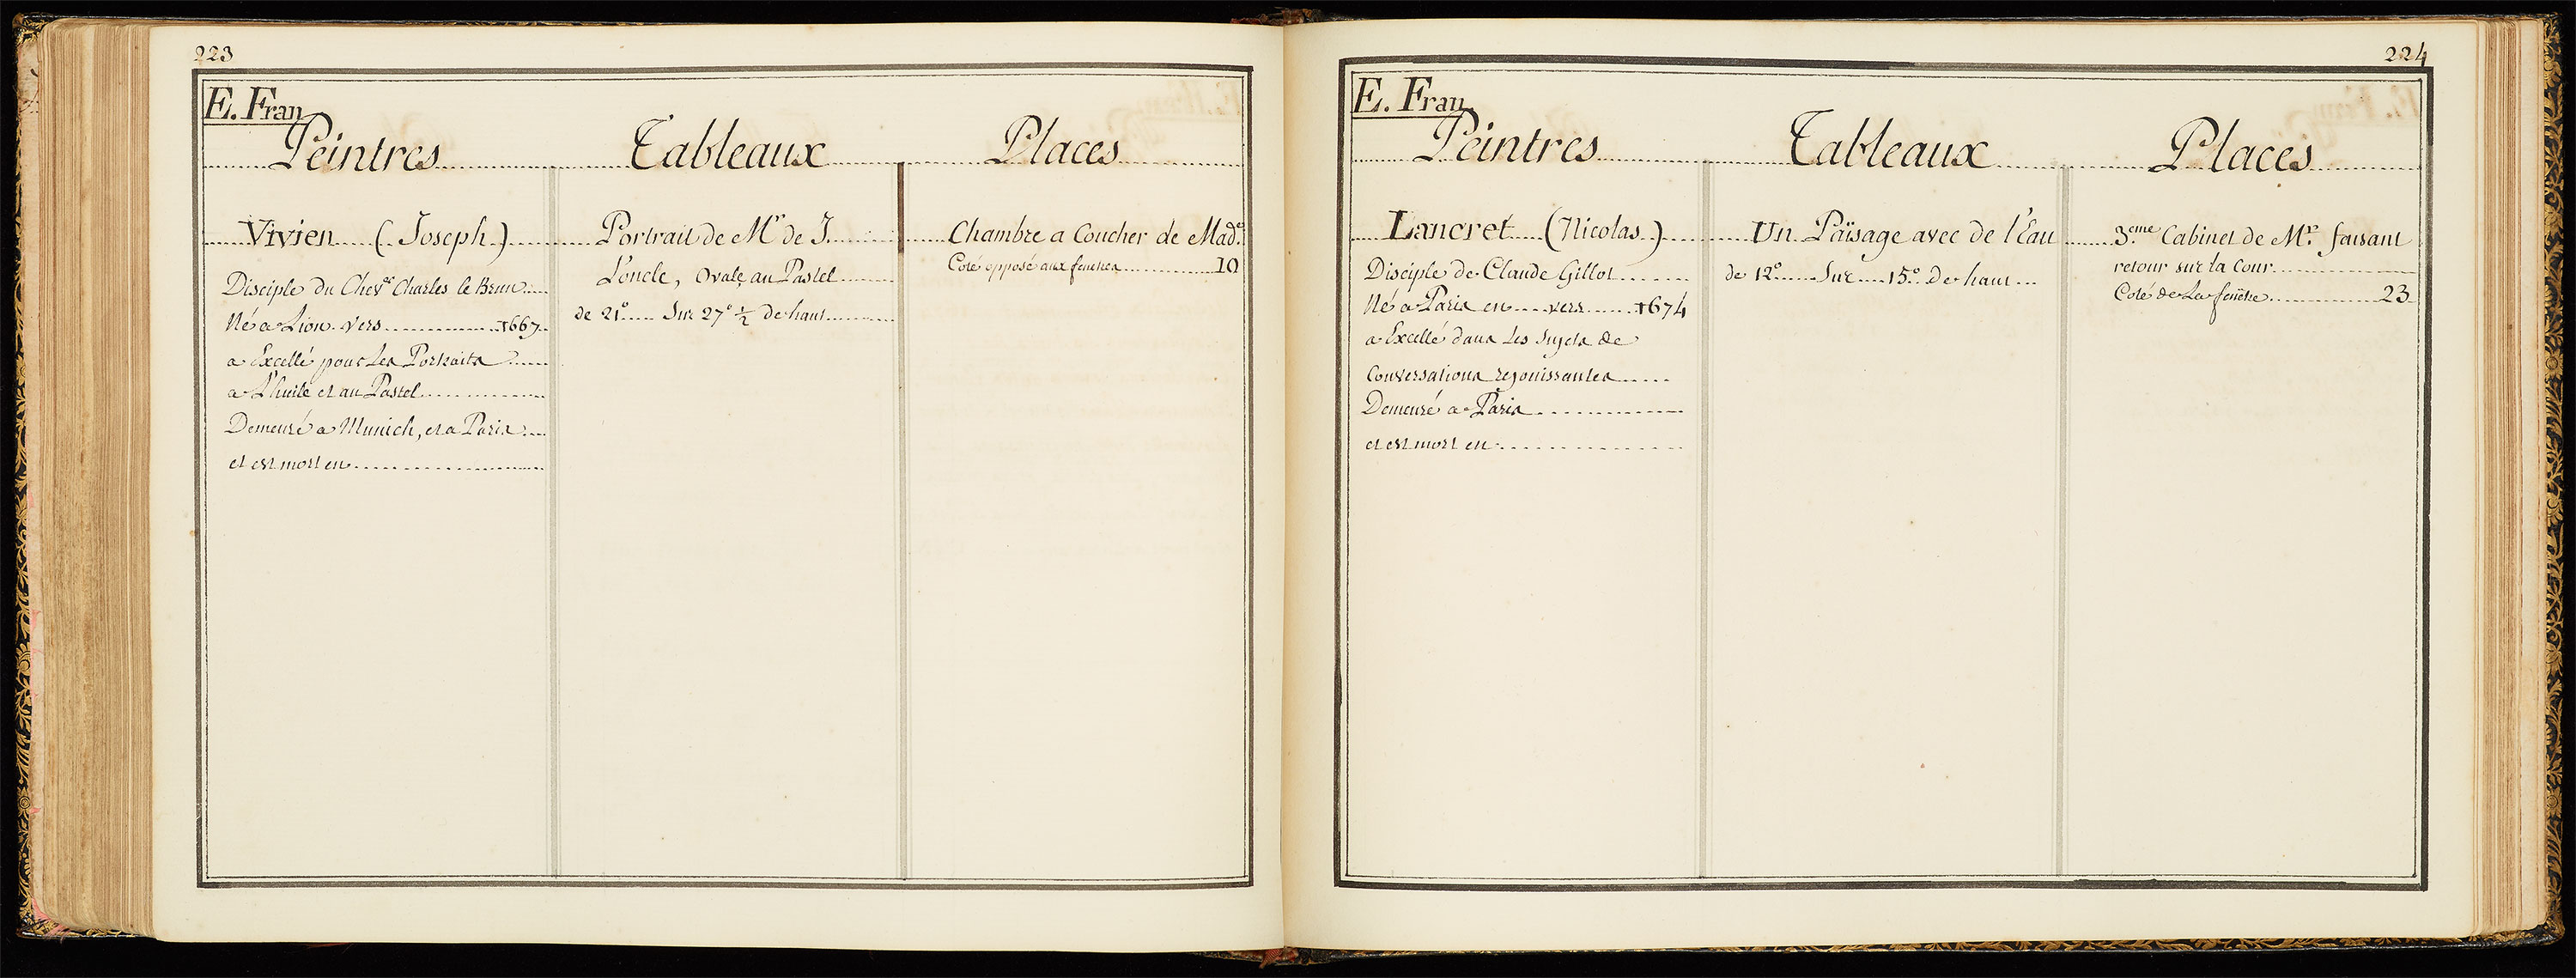 223
E. Fran
Peintres Tableaux Places
Vivien (Joseph)
Disciple du Chev.er Charles le Brun
Né a Lion vers 1667
a Excellé pour Les Portraits
a L'huile et au Pastel
Demeuré a Munich, et a Paris
et est mort en
Portrait de Mr. de J.
L'oncle, Ovale au Pastel
de 21° Sur 27° ½ de haut
Chambre a Coucher de Made.
Coté opposé aux fenetres 10
224
E. Fran
Peintres Tableaux Places
Lancret (Nicolas)
Disciple de Claude Gillot
Né a Paris en vers 1674
a Excellé dans Les Sujets de
Conversations rejouissantes
Demeuré a Paris
et est mort en
Un Païsage avec de l'Eau
de 12° Sur 15° De haut
3.eme Cabinet de Mr. faisant
retour sur la Cour
Coté de La fenêtre 23